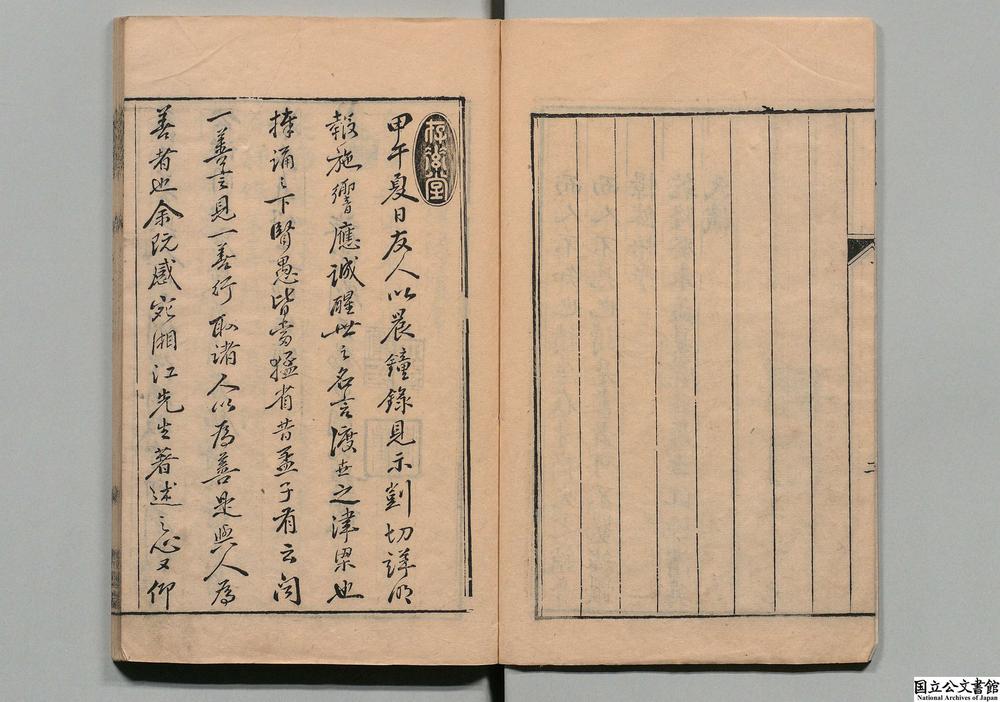 二
甲午夏日友人以晨鐘錄見示剴切詳明
報施響應誠醒世之名言渡世之津梁也
捧誦之下賢愚皆當猛省昔孟子有云聞
一善言見一善行取諸人以為善是與人為
善者也余既感宛湘江先生著述之心又仰
国立公文書館
National Archives of Japan